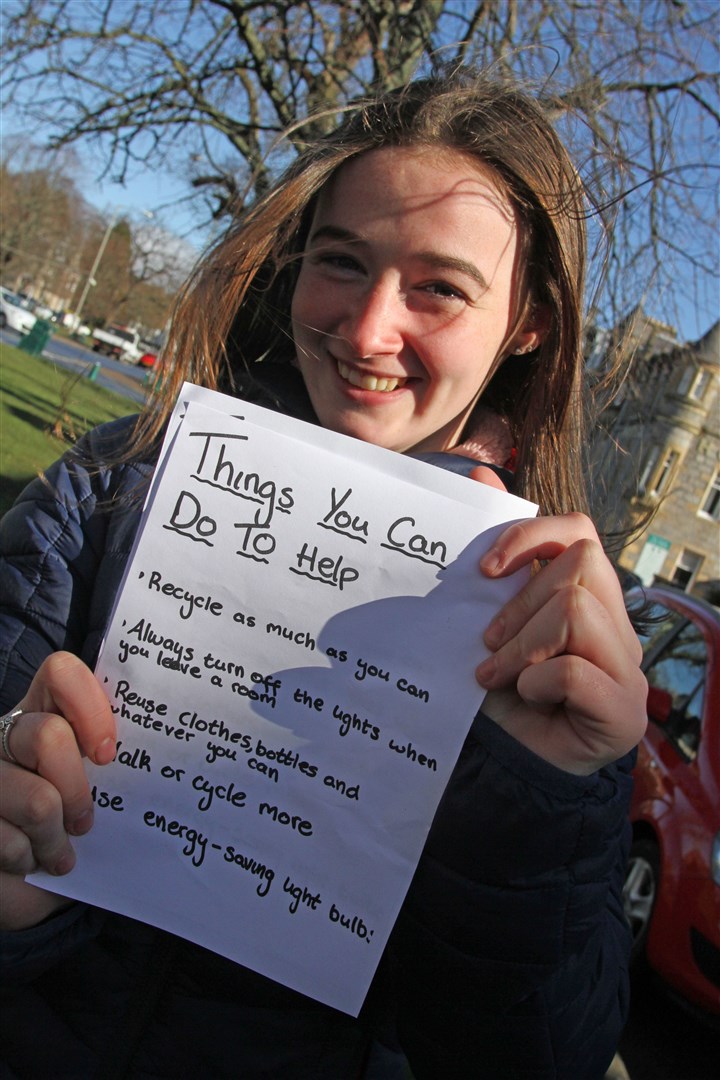 Things You Can
Do To Help
• Recycle as much as you can
• Always turn off the lights when
you leave a room
• Reuse clothes, bottles and
whatever you can
Walk or cycle more
Use energy-saving light bulbs